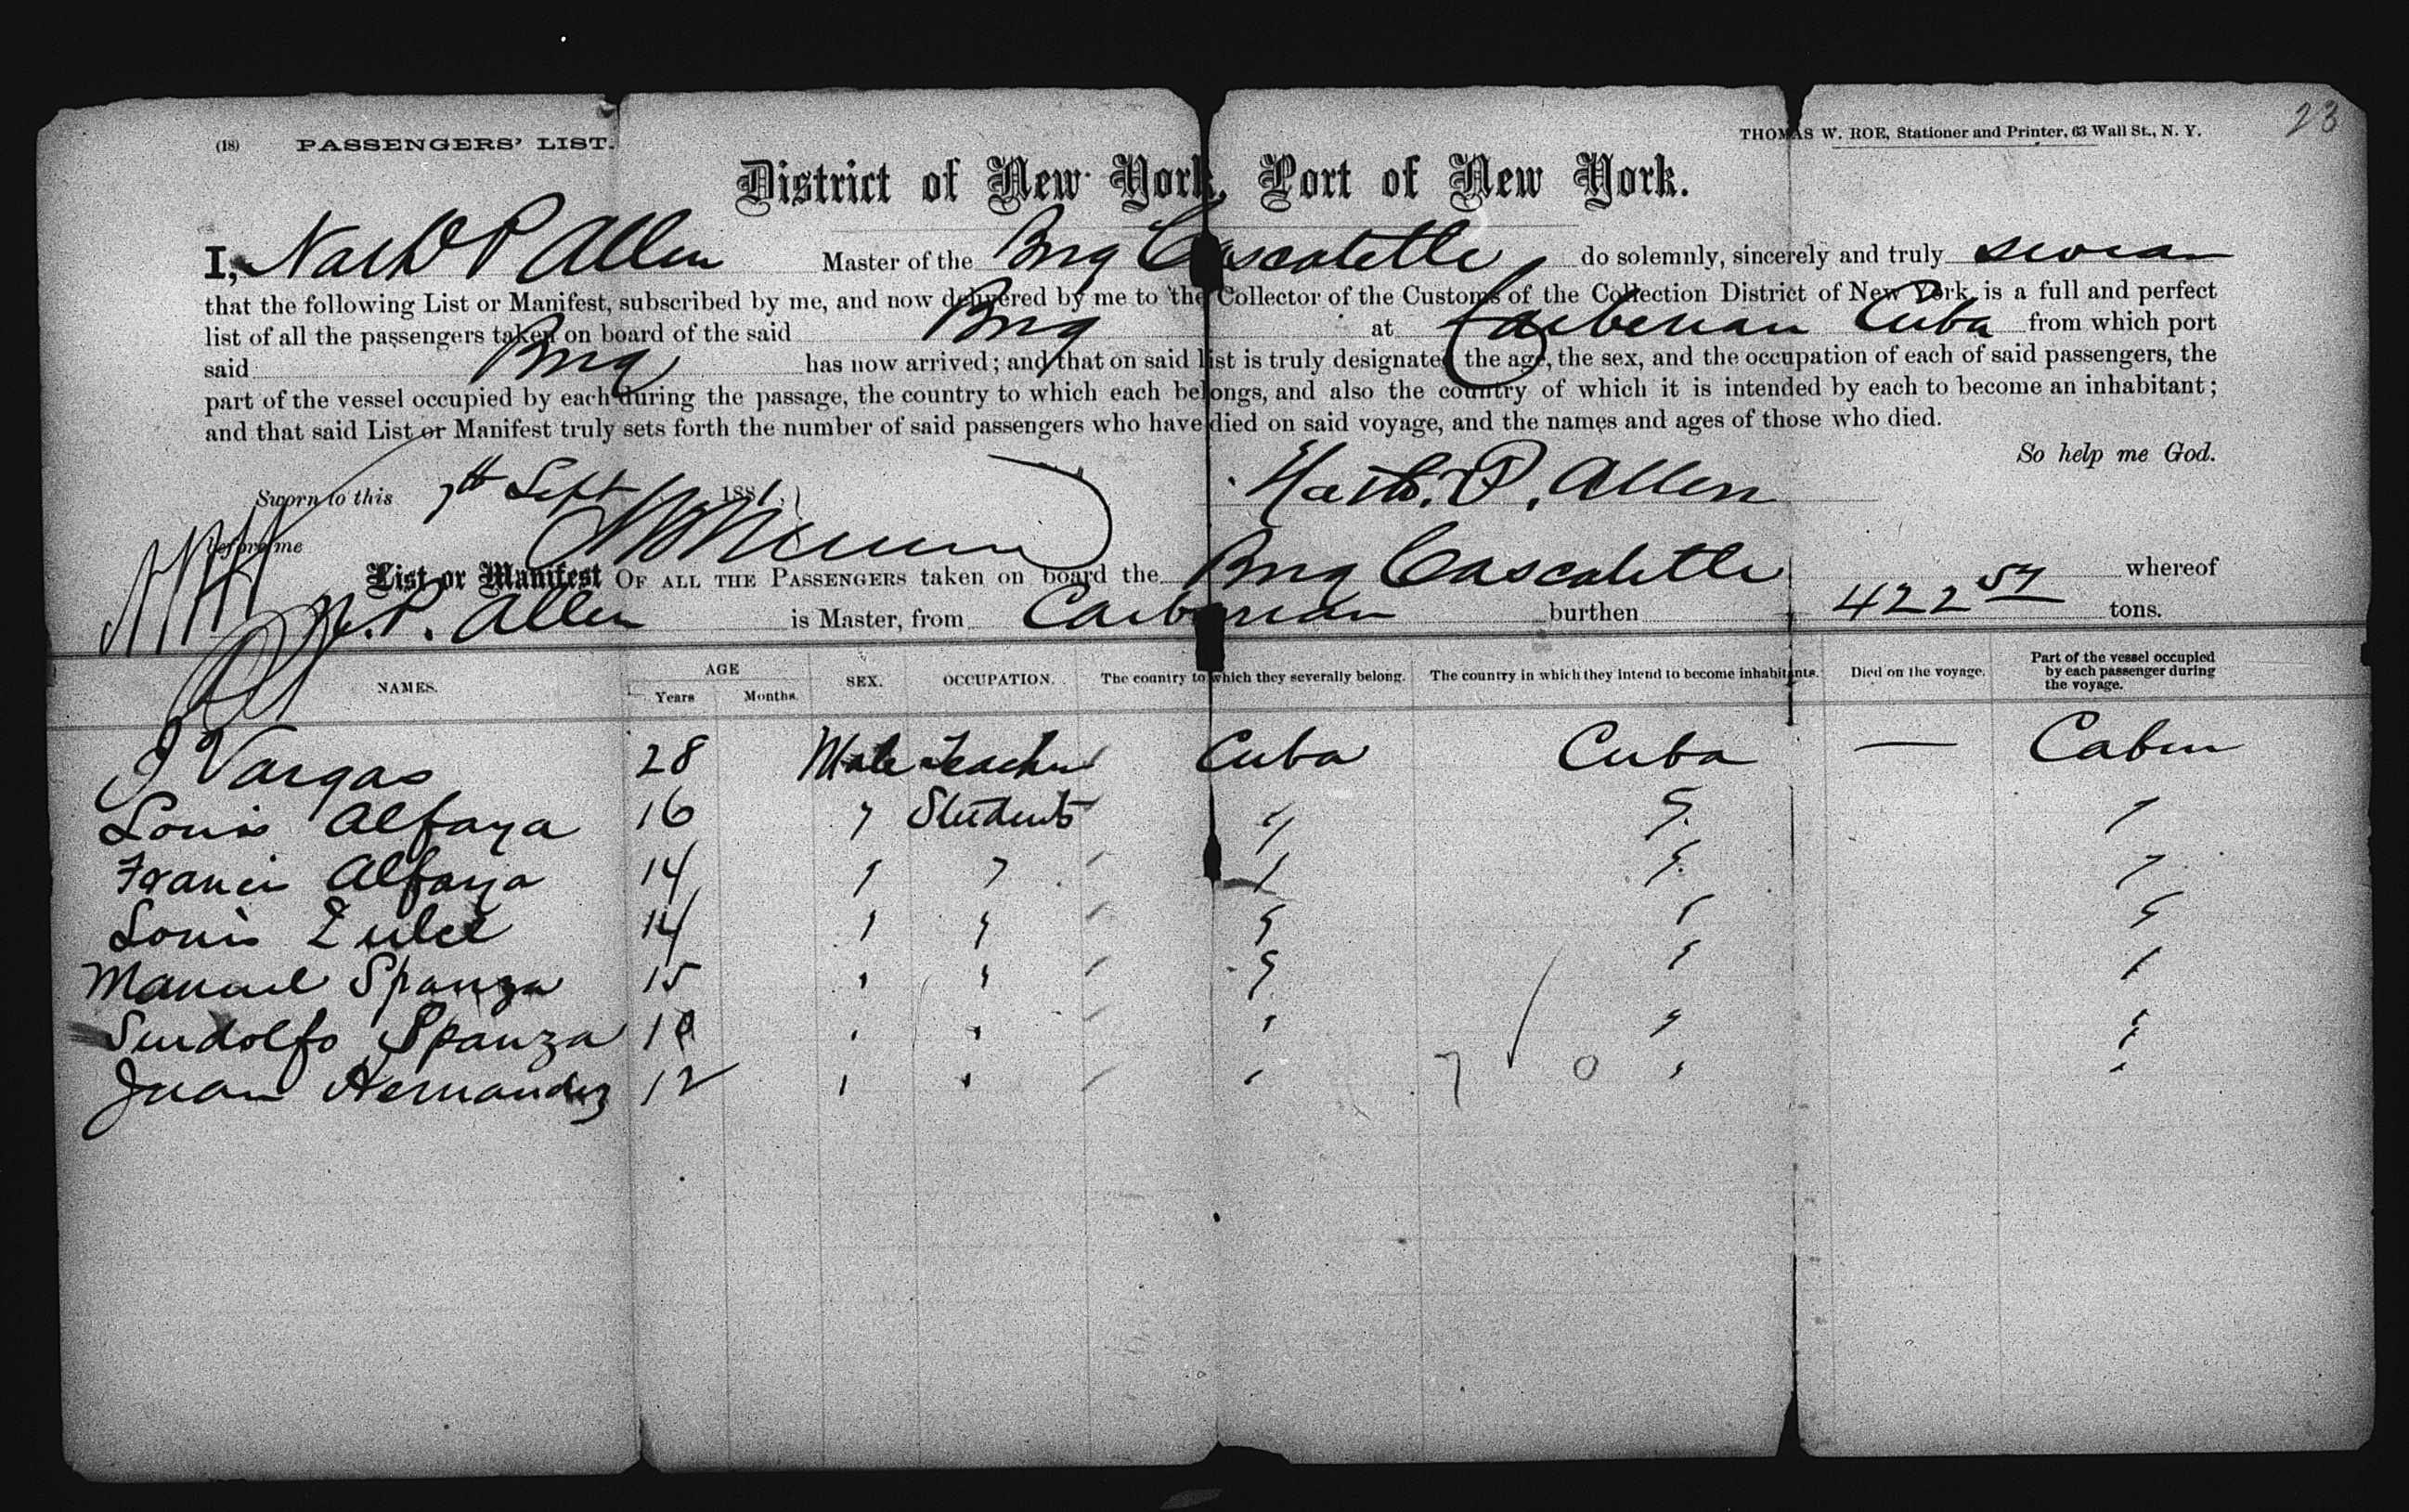 23
(18) PASSENGERS' LIST. THOMAS W. ROE, Stationer and Printer, 63 Wall St., N. Y.
District of New York, Port of New York.
I, Nath P Allen Master of the Brig Cascatelle do solemnly, sincerely and truly swear
that the following List or Manifest, subscribed by me, and now delivered by me to the Collector of the Customs of the Collection District of New York, is a full and perfect
list of all the passengers taken on board of the said Brig at Caiberian Cuba from which port
said Brig has now arrived; and that on said list is truly designated the age, the sex, and the occupation of each of said passengers, the
part of the vessel occupied by each during the passage, the country to which each belongs, and also the country of which it is intended by each to become an inhabitant;
and that said List or Manifest truly sets forth the number of said passengers who have died on said voyage, and the names and ages of those who died.
So help me God.
Sworn to this 7th Sept 1881, Nath. P. Allen
before me
List or Manifest OF ALL THE PASSENGERS taken on board the Brig Cascatelle whereof
N. P. Allen is Master, from Caiberian burthen 422 57 tons.
NAMES. AGE Years Months. SEX. OCCUPATION. The country to which they severally belong. The country in which they intend to become inhabitants. Died on the voyage. Part of the vessel occupied by each passenger during the voyage.
J Vargas 28 Male Teacher Cuba Cuba — Cabin
Louis Alfaya 16 " Students " " "
Francis Alfaya 14 " " " " "
Louis 14 " " " " "
Manuel Spanza 15 " " " " "
Spanza 10 " " " " "
Juan Hernandez 12 " " " " "
7 0